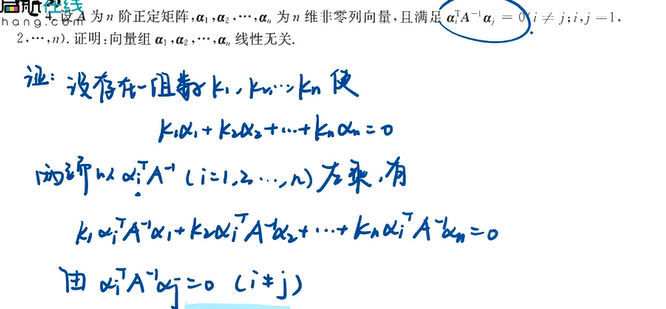 在线
hang.com
4. 设 A 为 n 阶正定矩阵,α₁,α₂,⋯,αₙ 为 n 维非零列向量,且满足 αᵢᵀA⁻¹αⱼ = 0(i ≠ j;i,j = 1,
2,⋯,n). 证明:向量组 α₁,α₂,⋯,αₙ 线性无关.
证: 设存在一组数 k₁, k₂, ⋯, kₙ 使
k₁α₁+k₂α₂+⋯+kₙαₙ=0
两边以 αᵢᵀA⁻¹ (i=1,2,⋯,n) 左乘,有
k₁αᵢᵀA⁻¹α₁+k₂αᵢᵀA⁻¹α₂+⋯+kₙαᵢᵀA⁻¹αₙ=0
由 αᵢᵀA⁻¹αⱼ=0 (i≠j)